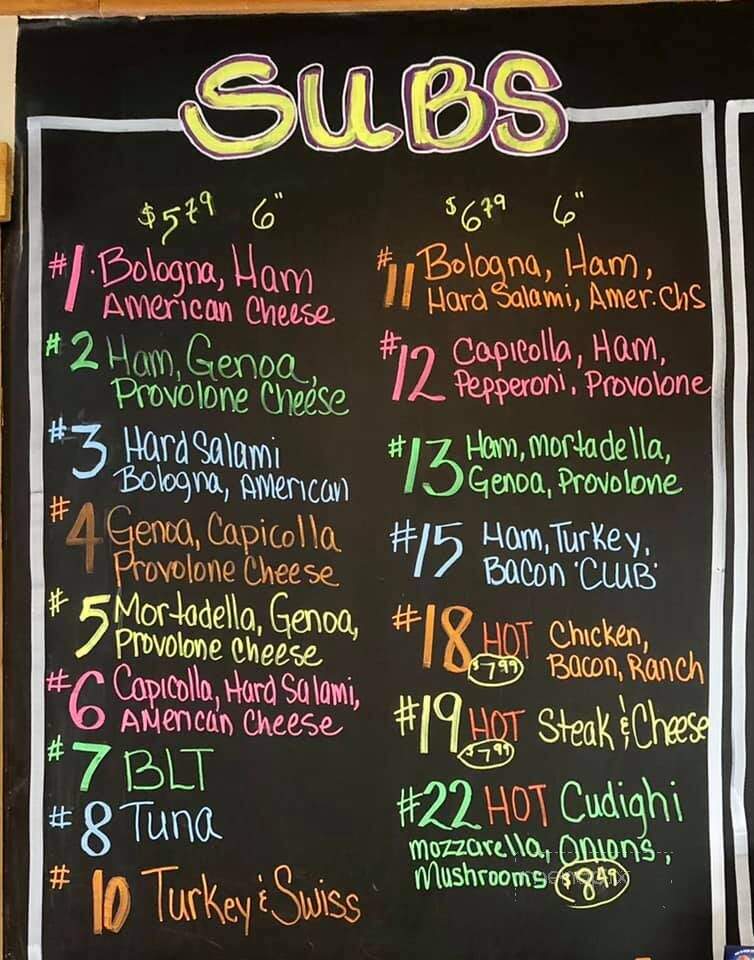 SUBS
$5.79 6"
#1. Bologna, Ham
American Cheese
#2 Ham, Genoa,
Provolone Cheese
#3 Hard Salami
Bologna, American
#4 Genoa, Capicolla
Provolone Cheese
#5 Mortadella, Genoa,
Provolone Cheese
#6 Capicolla, Hard Salami,
American Cheese
#7 BLT
#8 Tuna
#10 Turkey & Swiss
$6.79 6"
#11 Bologna, Ham,
Hard Salami, Amer. Chs
#12 Capicolla, Ham,
Pepperoni, Provolone
#13 Ham, mortadella,
Genoa, Provolone
#15 Ham, Turkey,
Bacon "CLUB"
#18 HOT Chicken,
$7.99 Bacon, Ranch
#19 HOT Steak & Cheese
$7.99
#22 HOT Cudighi
mozzarella, Onions,
Mushrooms $8.49